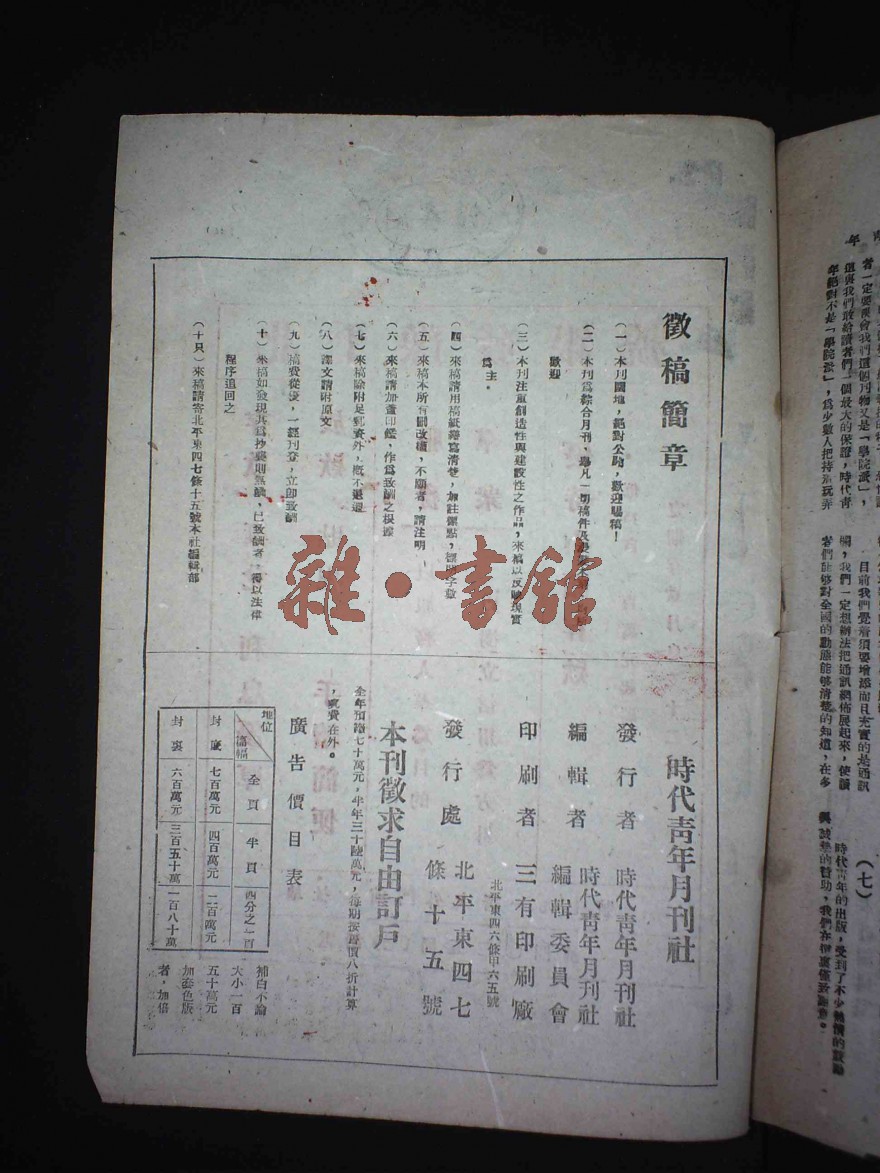 徵稿簡章
(一)本刊園地,絕對公開,歡迎賜稿!
(二)本刊爲綜合月刊,舉凡一切稿件
歡迎
(三)本刊注重創造性與建設性之作品,來稿以反映現實
爲主。
(四)來稿請用稿紙繕寫清楚,加註標點,
(五)來稿本所有刪改權,不願者,請注明。
(六)來稿請加蓋印鑑,作爲致酬之根據
(七)來稿除附足郵資外,概不退還
(八)譯文請附原文
(九)稿費從優,一經刊登,立卽致酬
(十)來稿如發現其爲抄襲則無酬,已致酬者,得以法律
程序追回之
(十只)來稿請寄北平東四七條十五號本社編輯部
雜·書館
時代青年月刊社
發行者 時代青年月刊社
編輯者 時代青年月刊社
編輯委員會
印刷者 三有印刷廠
北平東四六條甲六五號
發行處 北平東四七
條十五號
本刊徵求自由訂戶
全年預繳七十萬元,半年三十陸萬元,每期按售價八折計算
,郵費在外。
廣告價目表
地位 篇幅 全頁 半頁 四分之一頁
封底 七百萬元 四百萬元 二百萬元
封裏 六百萬元 三百五十萬 一百八十萬
補白不論
大小一百
五十萬元
加套色版
者,加倍
者一定要領會我們這個刊物又是「學院派」,
這裏我們敢給讀者們一個最大的保證,時代青
年絕對不是「學院派」,爲少數人把持玩弄
目前我們覺着須要增添而且充實的是通訊
欄,我們一定想辦法把通訊網佈展起來,使讀
者們能够對全國的動態能够清楚的知道,在多
時代青年的出版,受到了不少熱情的鼓勵
與誠摯的贊助,我們在這裏僅致謝意。
(七)